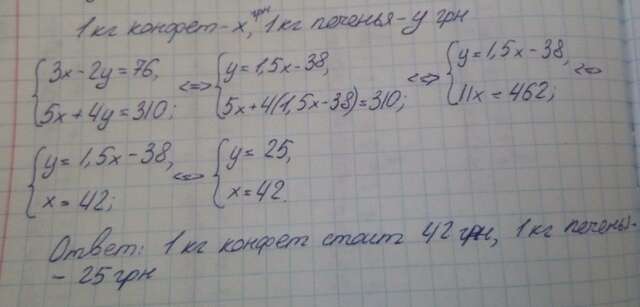 1 кг конфет - x грн, 1 кг печенья - y грн
{ 3x - 2y = 76, <=> { y = 1,5x - 38, <=> { y = 1,5x - 38, <=>
5x + 4y = 310; 5x + 4(1,5x - 38) = 310; 11x = 462;
{ y = 1,5x - 38, <=> { y = 25,
x = 42; x = 42.
Ответ: 1 кг конфет стоит 42 грн, 1 кг печенья-
- 25 грн